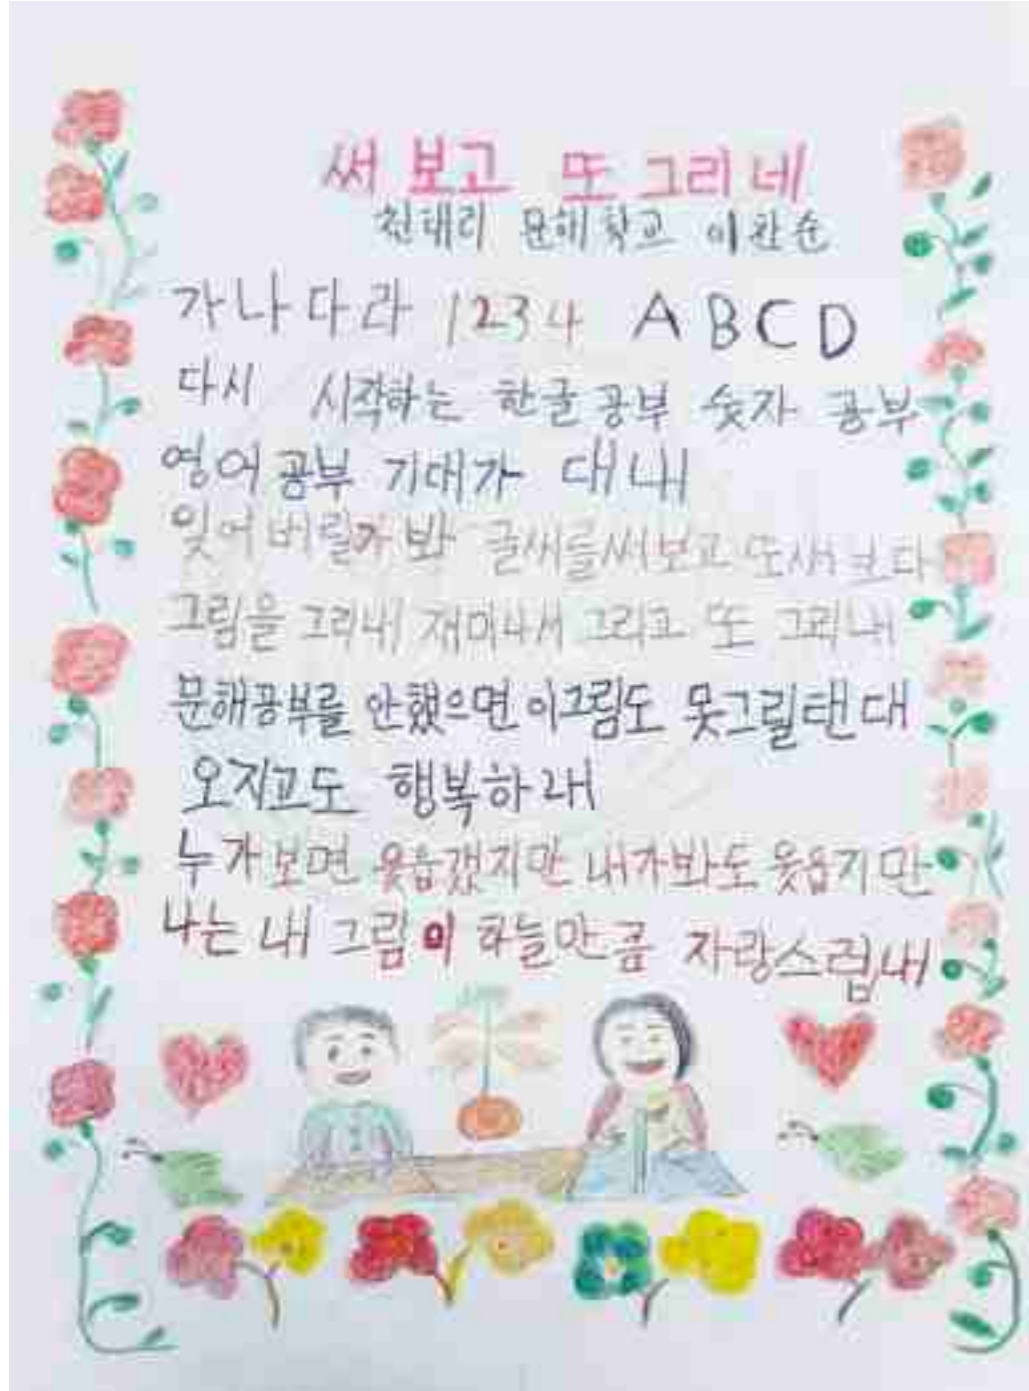 써 보고 또 그리네
천태리 문해학교 이완순
가나다라 1234 ABCD
다시 시작하는 한글공부 숫자 공부
영어공부 기대가 대내
잊어버릴가봐 글씨를써보고 또써보다
그림을 그리내 재미나서 그리고 또 그리내
문해공부를 안했으면 이그림도 못그릴탠대
오지고도 행복하내
누가보면 웃습갰지만 내가봐도 웃습지만
나는 내 그림이 하늘만큼 자랑스럽내